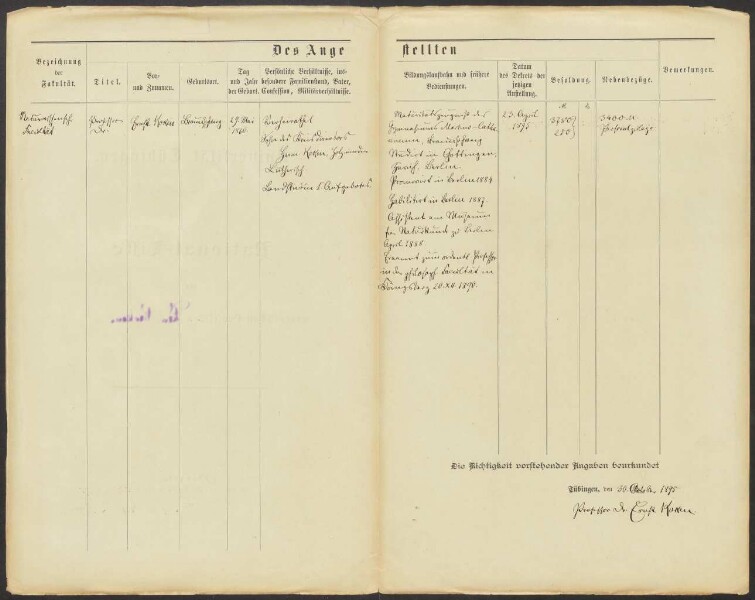 Des Ange
stellten
Bezeichnung
der
Fakultät.
Titel.
Vor-
und Zunamen.
Geburtsort.
Tag
und Jahr
der Geburt.
Persönliche Verhältnisse, ins-
besondere Familienstand, Vater,
Confession, Militärverhältnisse.
Bildungslaufbahn und frühere
Bedienstungen.
Datum
des Dekrets der
jetzigen
Anstellung.
Besoldung.
Nebenbezüge.
Bemerkungen.
Naturwissensch.
Fakultät
Professor
Dr.
Ernst Koken
Braunschweig
29 Mai
1860
Verheirathet
Sohn des
Herm. Koken, Holzminden
Lutherisch
Landsturm
Maturitätszeugniss des
Gymnasiums
Braunschweig
Studirt in Göttingen,
Zürich, Berlin
Promovirt in Berlin 1884
Habilitirt in Berlin 1887.
Assistent am Museum
für Naturkunde zu Berlin
April 1888
Ernannt zum ordentl. Professor
in der philosoph. Facultät in
Königsberg 1890.
23. Aug.
1895
M
3400 M
Die Richtigkeit vorstehender Angaben beurkundet
Tübingen, den 30. Oktober 1895
Professor Dr. Ernst Koken